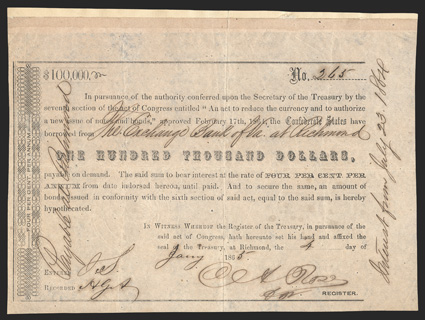 $100,000.
No. 265
In pursuance of the authority conferred upon the Secretary of the Treasury by the
seventh section of the act of Congress entitled "An act to reduce the currency and to authorize
a new issue of notes and bonds," approved February 17th, 1864, the Confederate States have
borrowed from The Exchange Bank of Va. at Richmond
ONE HUNDRED THOUSAND DOLLARS,
payable on demand. The said sum to bear interest at the rate of FOUR PER CENT PER
ANNUM from date indorsed hereon, until paid. And to secure the same, an amount of
bonds issued in conformity with the sixth section of said act, equal to the said sum, is hereby
hypothecated.
In Witness Whereof the Register of the Treasury, in pursuance of the
said act of Congress, hath hereunto set his hand and affixed the
seal of the Treasury, at Richmond, the 4 day of
Jany 1865.
Entered
Recorded
Ross
REGISTER.
Payable at Richmond
Interest from July 23 1864